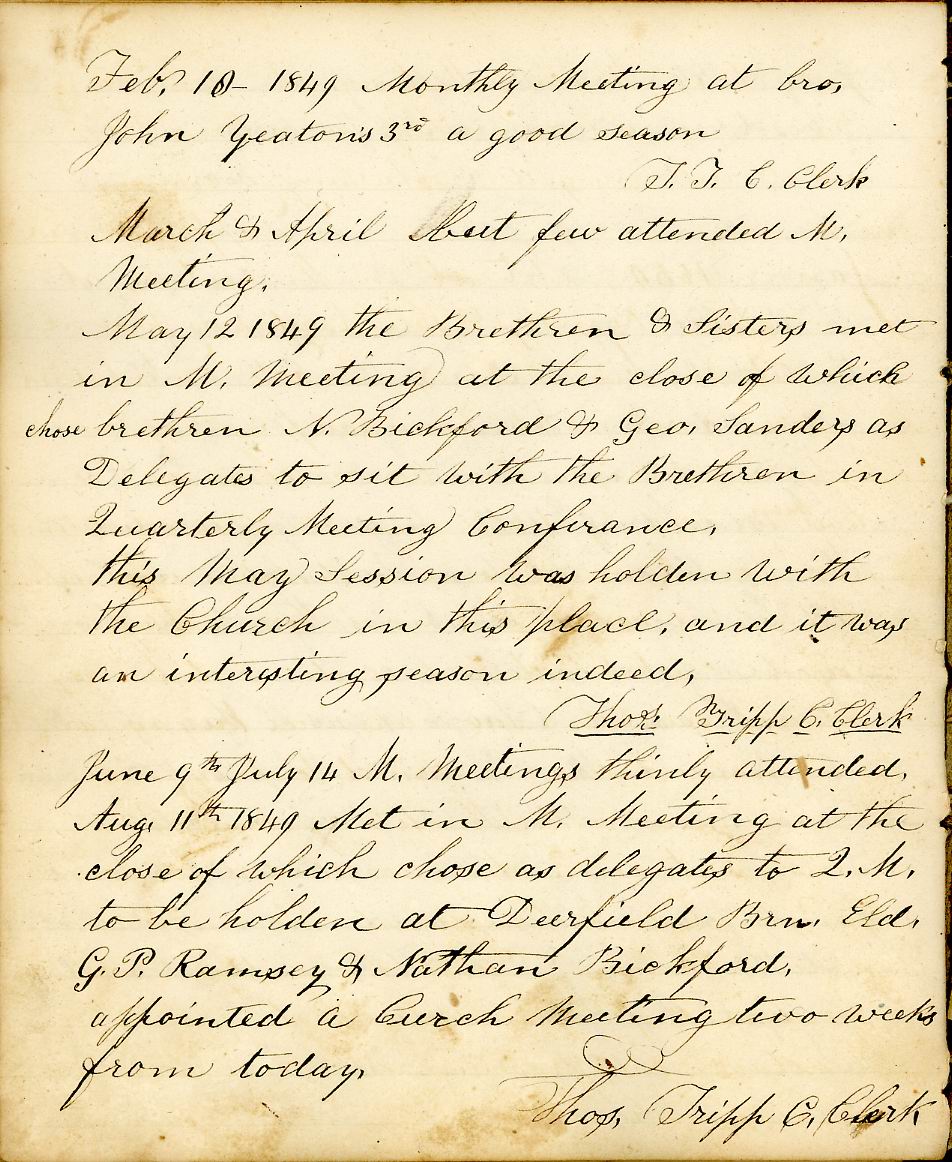 Feb. 10 - 1849 Monthly Meeting at bro,
John Yeaton's 3rd a good season
T. T. C. Clerk
March & April but few attended M.
Meeting.
May 12 1849 the Brethren & Sisters met
in M. Meeting at the close of which
chose brethren N. Bickford & Geo. Sanders as
Delegates to sit with the Brethren in
Quarterly Meeting Conferance,
this May Session was holden with
the Church in this place. and it was
an interesting season indeed,
Thos. Tripp C. Clerk
June 9th July 14 M. Meetings thinly attended.
Aug. 11th 1849 Met in M. Meeting at the
close of which chose as delegates to Q. M.
to be holden at Deerfield Brn. Eld.
G. P. Ramsey & Nathan Bickford,
appointed a Curch Meeting two weeks
from today,
Thos. Tripp C. Clerk